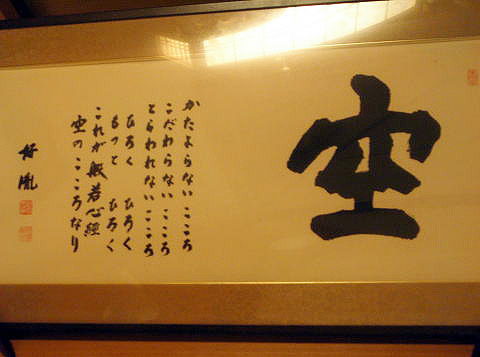 空
かたよらないこころ
こだわらないこころ
とらわれないこころ
ひろく ひろく
もっと ひろく
これが般若心経
空のこころなり
好胤